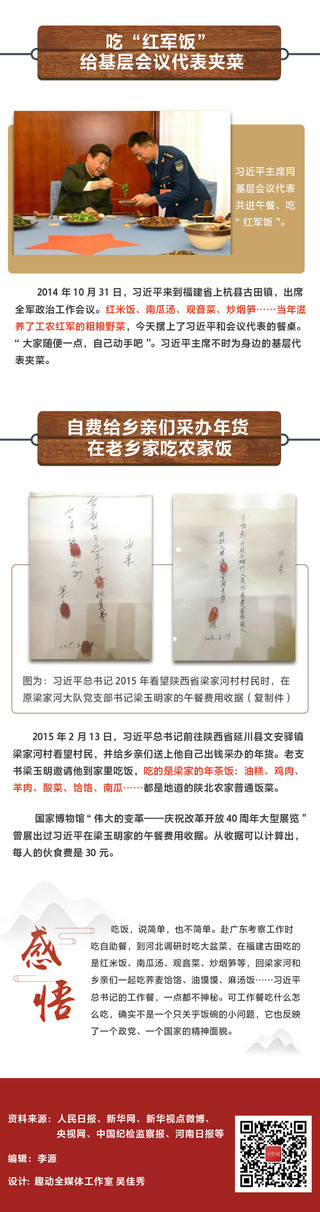 吃“红军饭”
给基层会议代表夹菜
习近平主席同
基层会议代表
共进午餐、吃
“红军饭”。
2014 年 10 月 31 日，习近平来到福建省上杭县古田镇，出席
全军政治工作会议。红米饭、南瓜汤、观音菜、炒烟笋……当年滋
养了工农红军的粗粮野菜，今天摆上了习近平和会议代表的餐桌。
“大家随便一点，自己动手吧”。习近平主席不时为身边的基层代
表夹菜。
自费给乡亲们采办年货
在老乡家吃农家饭
收条
收条
图为：习近平总书记 2015 年看望陕西省梁家河村村民时，在
原梁家河大队党支部书记梁玉明家的午餐费用收据（复制件）
2015 年 2 月 13 日，习近平总书记前往陕西省延川县文安驿镇
梁家河村看望村民，并给乡亲们送上他自己出钱采办的年货。老支
书梁玉明邀请他到家里吃饭，吃的是梁家的年茶饭：油糕、鸡肉、
羊肉、酸菜、饸饹、南瓜……都是地道的陕北农家普通饭菜。
国家博物馆“伟大的变革——庆祝改革开放 40 周年大型展览”
曾展出过习近平在梁玉明家的午餐费用收据。从收据可以计算出，
每人的伙食费是 30 元。
感悟
吃饭，说简单，也不简单。赴广东考察工作时
吃自助餐，到河北调研时吃大盆菜，在福建古田吃的
是红米饭、南瓜汤、观音菜、炒烟笋等，回梁家河和
乡亲们一起吃荞麦饸饹、油馍馍、麻汤饭……习近平
总书记的工作餐，一点都不神秘。可工作餐吃什么怎
么吃，确实不是一个只关乎饭碗的小问题，它也反映
了一个政党、一个国家的精神面貌。
资料来源：人民日报、新华网、新华视点微博、
央视网、中国纪检监察报、河南日报等
编辑：李源
设计：趣动全媒体工作室 吴佳秀